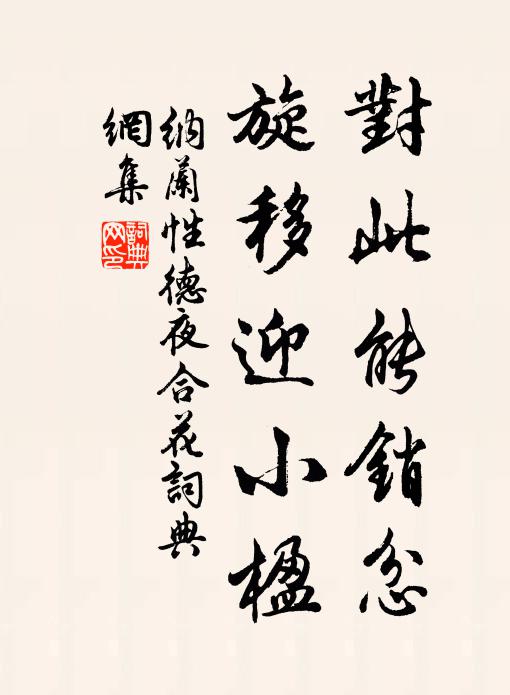 對此能銷忿
旋移迎小楹
納蘭性德夜合花詞典
網集
詞典網印